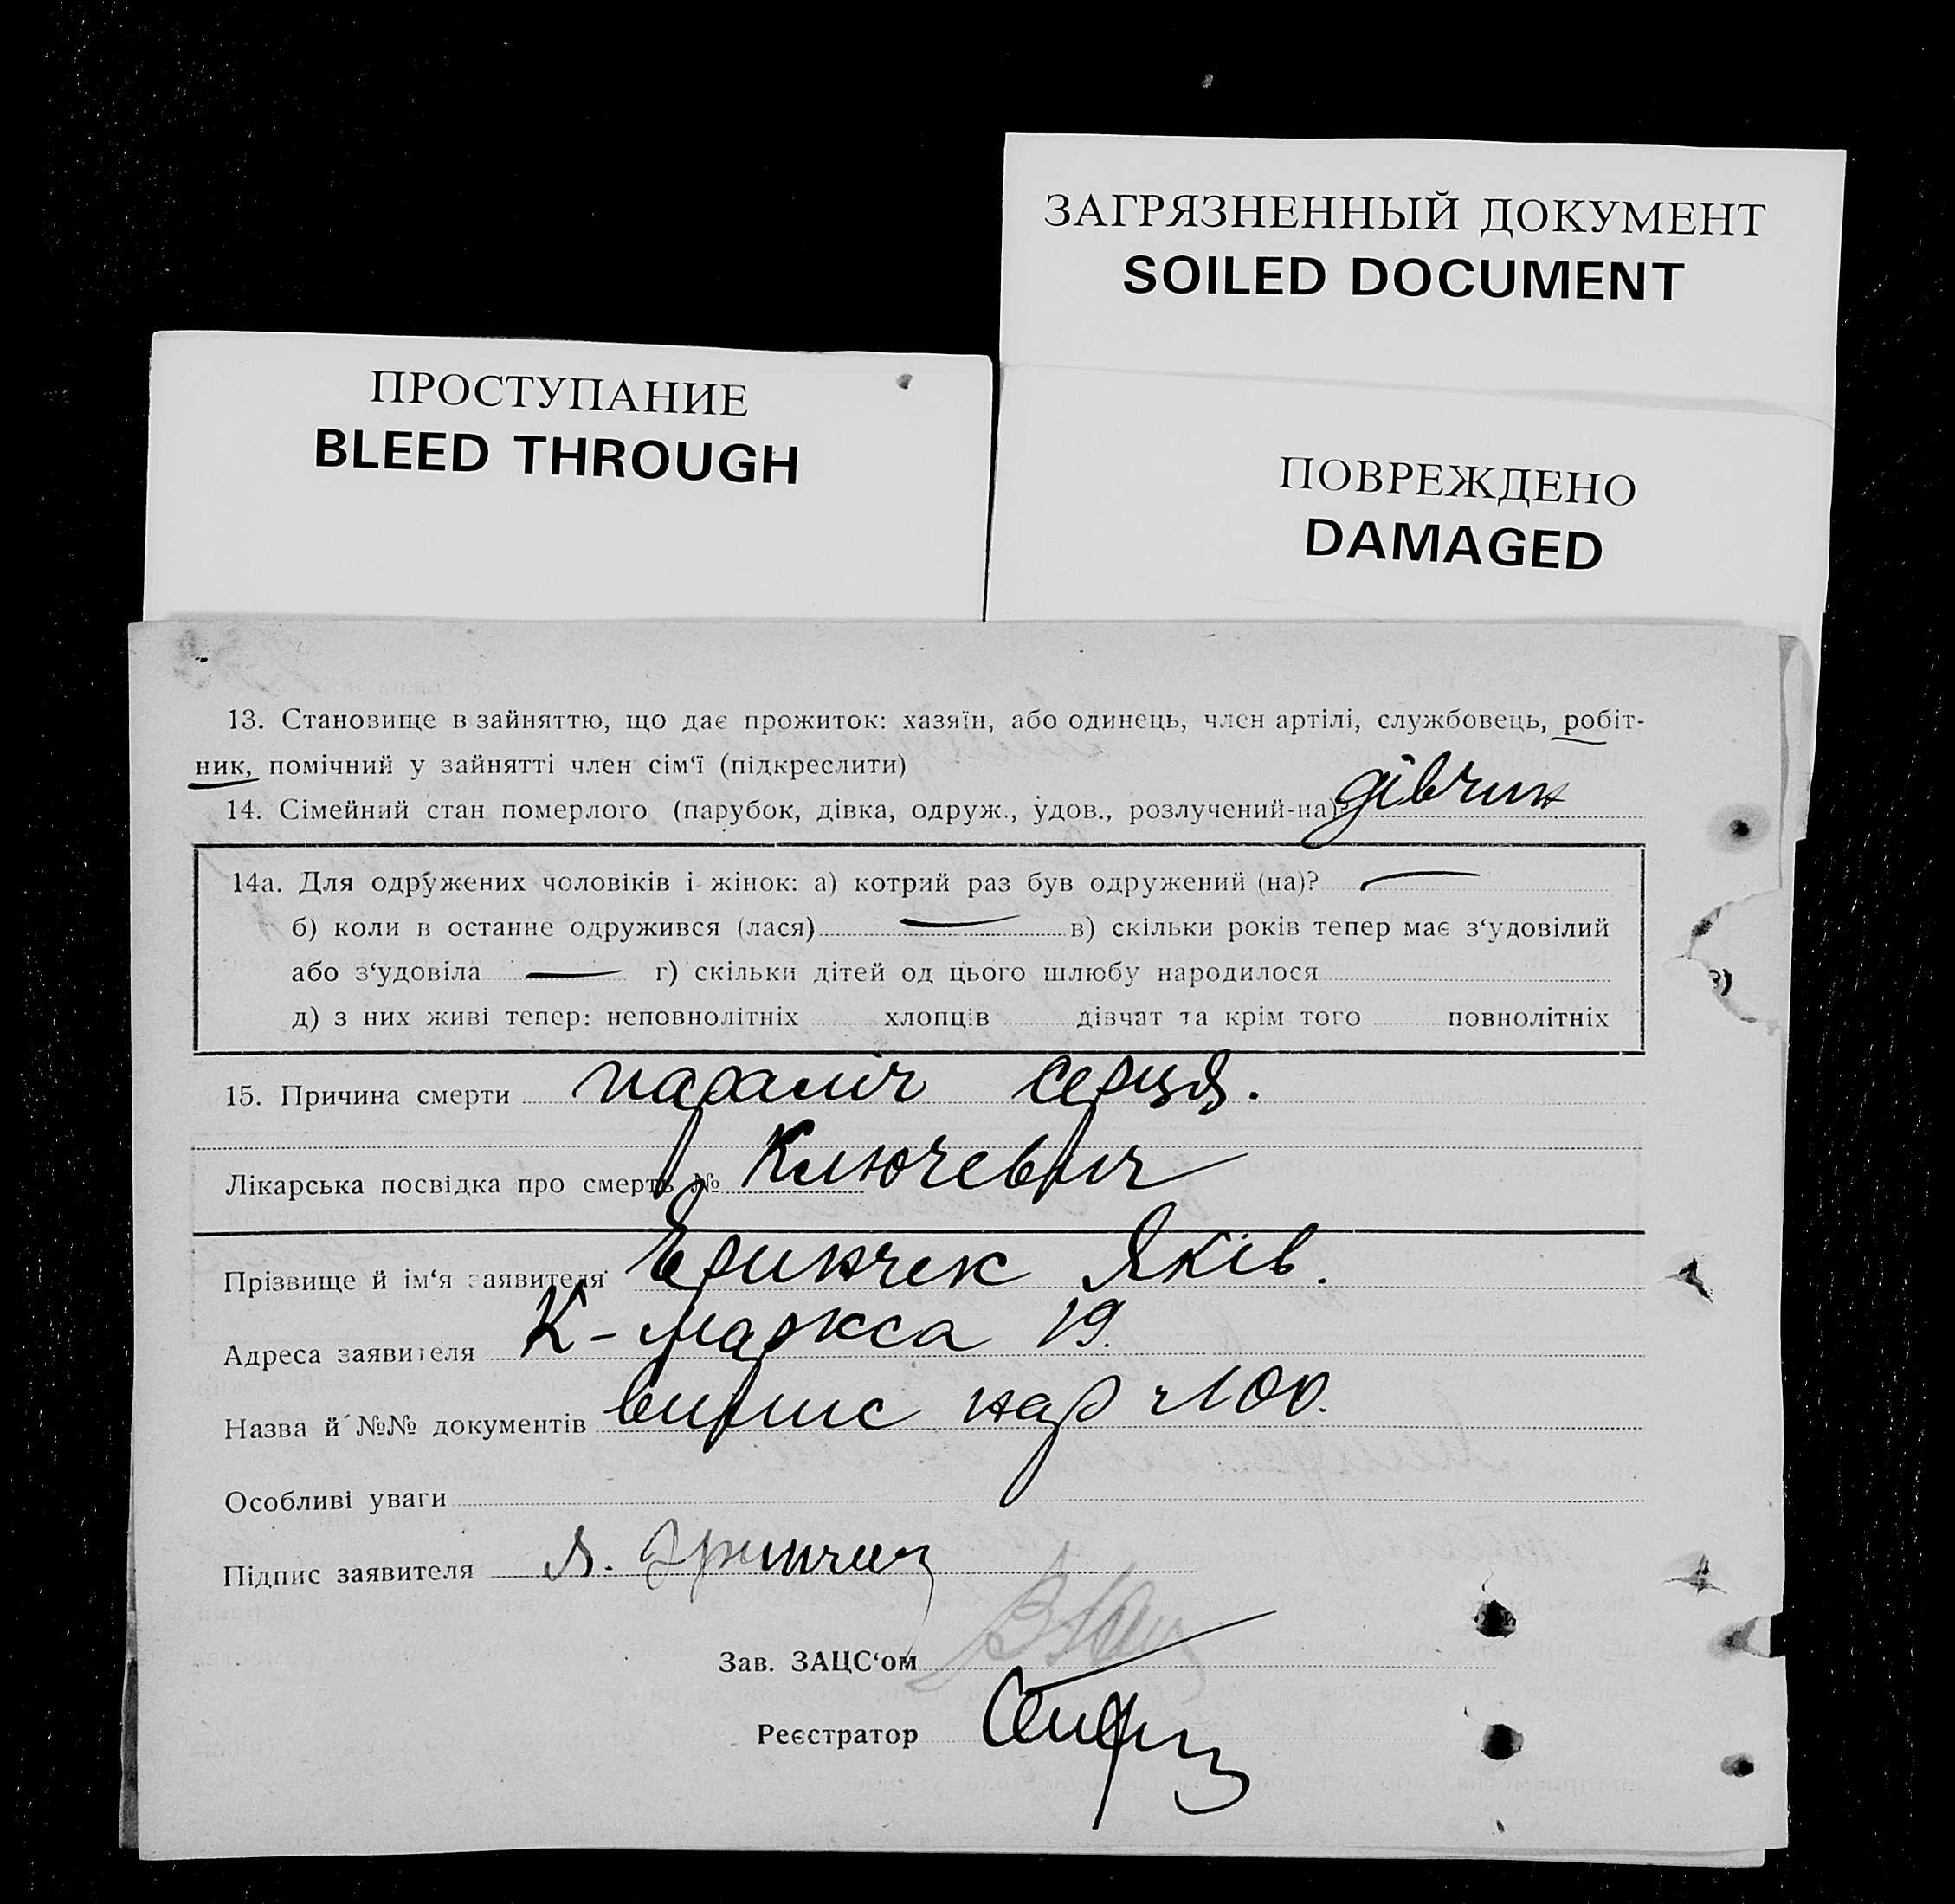 ЗАГРЯЗНЕННЫЙ ДОКУМЕНТ
SOILED DOCUMENT
ПРОСТУПАНИЕ
BLEED THROUGH
ПОВРЕЖДЕНО
DAMAGED
13. Становище в зайняттю, що дає прожиток: хазяїн, або одинець, член артілі, службовець, робіт-
ник, помічний у зайнятті член сім‘ї (підкреслити)
14. Сімейний стан померлого (парубок, дівка, одруж., удов., розлучений-на)?
14а. Для одружених чоловіків і жінок: а) котрий раз був одружений (на)? —
б) коли в останне одружився (лася) — в) скільки років тепер має з‘удовілий
або з‘удовіла — г) скільки дітей од цього шлюбу народилося
д) з них живі тепер: неповнолітніх хлопців дівчат та крім того повнолітніх
15. Причина смерти параліч серця.
Лікарська посвідка про смерть № Ключевич
Прізвище й ім‘я заявителя Яків.
Адреса заявителя К-Маркса 19.
Назва й №№ документів випис
Особливі уваги
Підпис заявителя Я.
Зав. ЗАЦС‘ом
Реєстратор